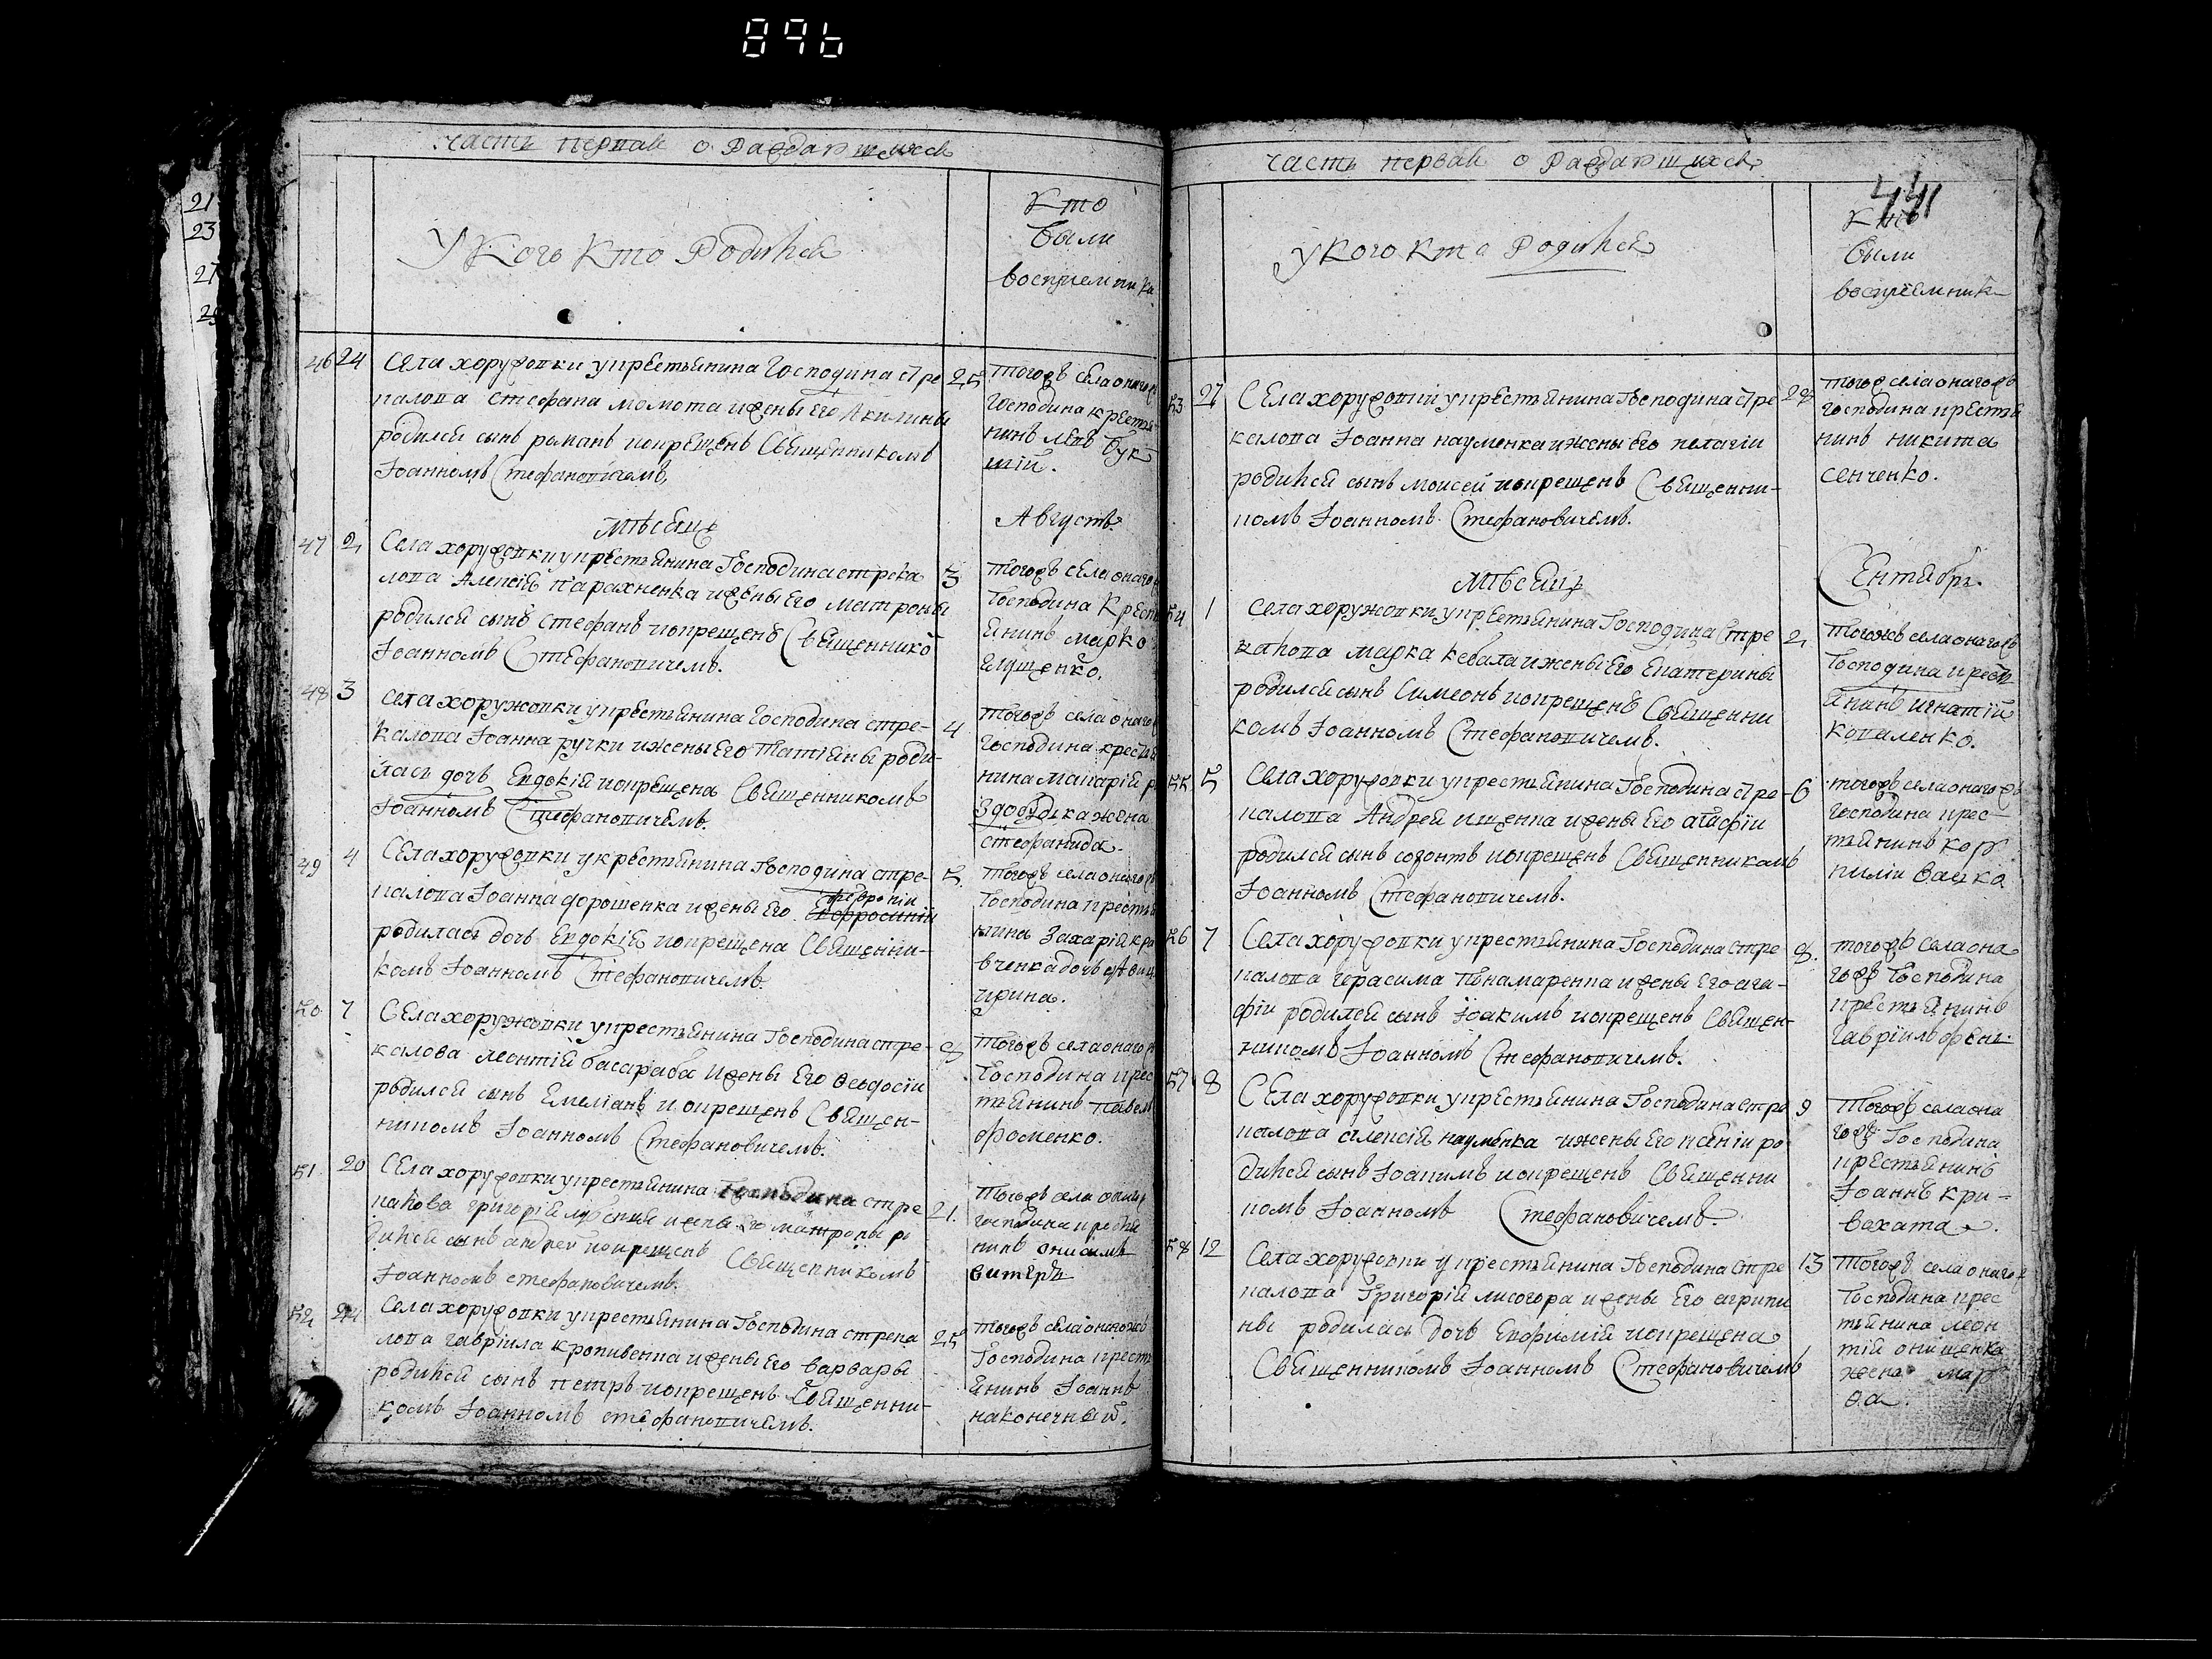 896
21
23
27
29
часть первая о Раждающихся
У Кого Кто Родился
Кто
были
восприемники
46 24 Села хоружовки у крестьянина Господина стре 25
калова стефана момота и жены его Акилины
родился сынъ романъ и крещенъ Священникомъ
Іоанномъ Стефановичемъ,
тогожъ села онагожъ
Господина крестья
нинъ
шій.
Мѣсяцъ
Августъ
47 2 Села хоружовки у крестьянина Господина стрека 3
лова Алексія Парахненка и жены его матроны
родился сынъ стефанъ и крещенъ Священнико
Іоанномъ Стефановичемъ.
тогожъ села онаго
Господина Крест
янинъ марко
глущенко.
48 3 села хоружовки у крестьянина Господина стре- 4
калова Іоанна ручки и жены его Татіяны роди-
лась дочь Евдокія и крещена Священникомъ
Іоанномъ Стефановичемъ.
тогожъ села онаго
господина крестья
нина макарія
жена
стефанида.
49 4 Села хоружовки у крестьянина Господина стре- 5.
февроніи
калова Іоанна дорошенка и жены его Евфросиніи
родилась дочь Евдокія и крещена Священни-
комъ Іоанномъ Стефановичемъ.
тогожъ села онагожъ
Господина крестья
нина Захарія кра
вченка дочь
ирина.
50 7 Села хоружовки у крестьянина Господина стре- 8
калова леонтія басараба и жены его Феодосіи
родился сынъ Емеліанъ и крещенъ Священ-
никомъ Іоанномъ Стефановичемъ.
тогожъ села онагож
Господина крес
тьянинъ павел
фоменко.
51. 20 Села хоружовки у крестьянина Господина стре 21.
калова григорія и жены его матроны ро
дился сынъ андрей и крещенъ Священникомъ
Іоанномъ стефановичемъ.
тогожъ села онаг
господина крестья
нинъ онисимъ
52 24 Села хоружовки у крестьянина Господина стрека 25
лова гавріила кропивенка и жены его варвары
родился сынъ петръ и крещенъ Священни-
комъ Іоанномъ стефановичемъ.
тогожъ села онагожъ
Господина крестъ
янинъ Іоаннъ
наконечный.
часть первая о Раждающихся
441
у Кого Кто Родился
Кто
были
восприемник
53 27 Села хоружовки у крестьянина Господина Стре 28
калова Іоанна науменка и жены его пелагіи
родился сынъ моисей и крещенъ Священни-
комъ Іоанномъ Стефановичемъ.
тогож села онагожъ
господина крестья
нинъ никита
сенченко.
Мѣсяцъ
Сентябрь.
54 1 села хоружовки у крестьянина Господина Стре 2
калова марка кебала и жены его Екатерины
родился сынъ Симеонъ и крещенъ Священни
комъ Іоанномъ Стефановичемъ.
тогожъ села онагожъ
Господина крестъ
янинъ игнатій
коваленко.
55 5 Села хоружовки у крестьянина Господина стре- 6
калова Андрея ищенка и жены его агафіи
родился сынъ созонтъ и крещенъ Священникомъ
Іоанномъ Стефановичемъ.
тогожъ села онагожъ
господина крес-
тьянинъ кор
нилій
56 7 Села хоружовки у крестьянина Господина стре 8.
калова герасима Понамаренка и жены его ага-
фіи родился сынъ Іоакимъ и крещенъ Священ-
никомъ Іоанномъ Стефановичемъ.
тогожъ села она
гожъ Господина
крестьянинъ
гавріилъ
57 8 Села хоружовки у крестьянина Господина Стре 9
калова алексія науменка и жены его ксеніи ро
дился сынъ Іоакимъ и крещенъ Священни
комъ Іоанномъ Стефановичемъ.
Тогожъ села она
гожъ Господина
крестьянинъ
Іоаннъ кри-
вохата.
58 12 Села хоружовки у крестьянина Господина Стре 13
калова Григорія лисогора и жены его агрипи
ны родилась дочь Евфимія и крещена
Священникомъ Іоанномъ Стефановичемъ
Тогожъ села онагож
Господина крес
тьянина леон
тія онищенка
жена мар
ѳа.